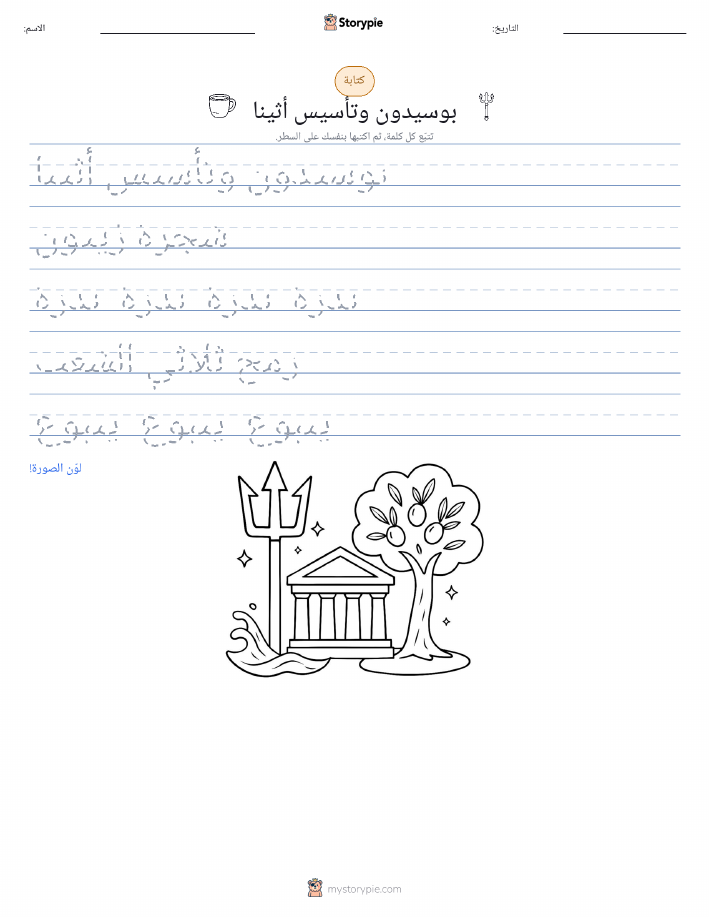 الاسم:
Storypie
التاريخ:
كتابة
بوسيدون وتأسيس أثينا
تتبّع كل كلمة، ثم اكتبها بنفسك على السطر.
بوسيدون وتأسيس أثينا
شجرة زيتون
رمح ثلاثي الشعب
ينبوع ينبوع ينبوع
لوّن الصورة!
mystorypie.com